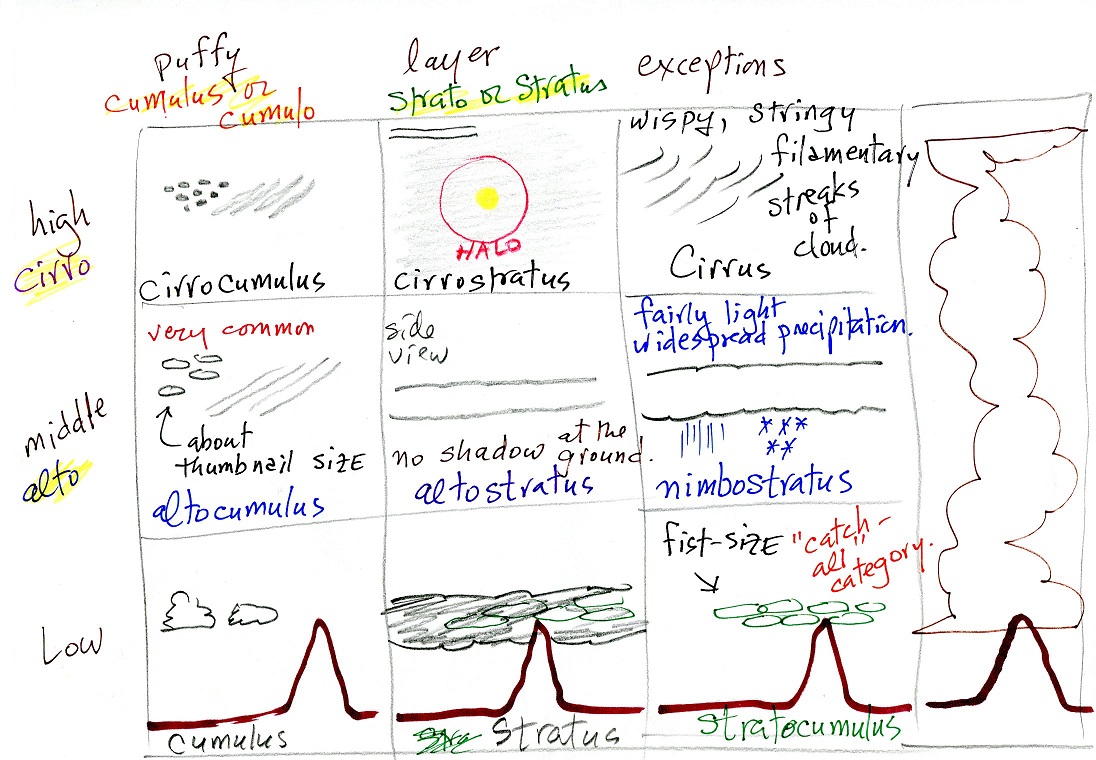 puffy
cumulus or
cumulo
layer
strato or stratus
exceptions
high
cirro
cirrocumulus
HALO
cirrostratus
wispy, stringy
filamentary
streaks
of
cloud.
Cirrus
middle
alto
very common
about
thumbnail size
altocumulus
side
view
no shadow at the
ground.
altostratus
fairly light
widespread precipitation.
nimbostratus
Low
cumulus
Stratus
fist-size "catch-
all"
category.
Stratocumulus